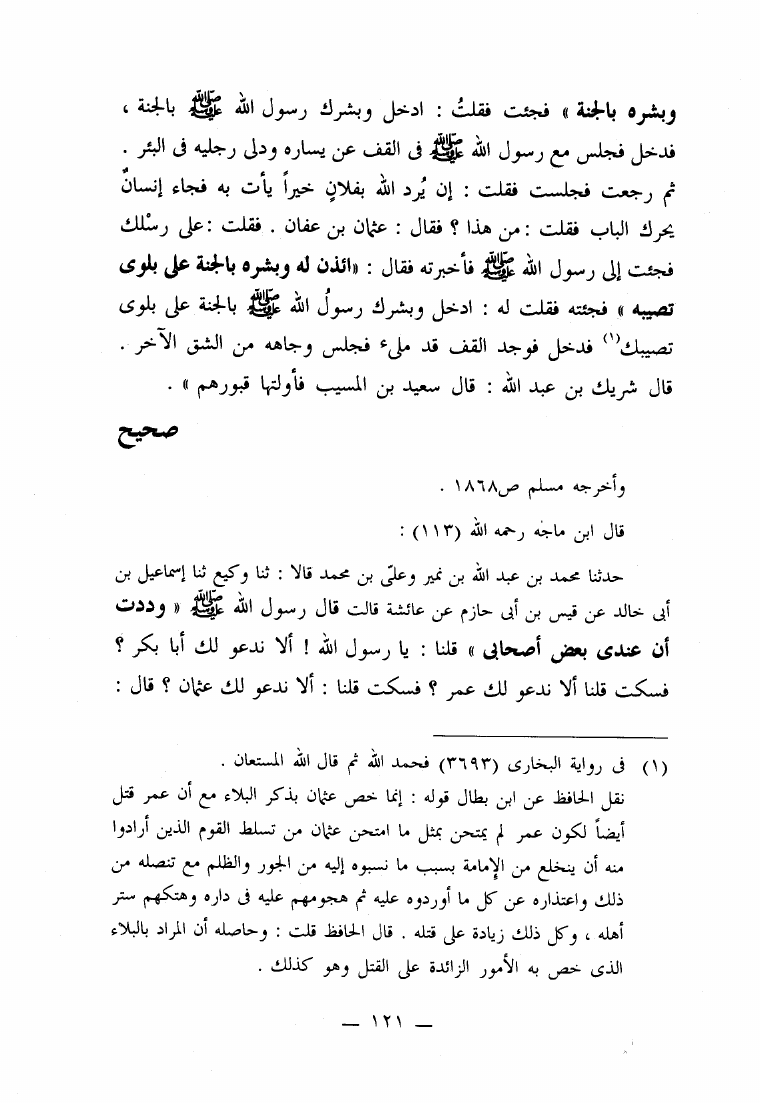 وبشره بالجنة » فجئت فقلتُ : ادخل وبشرك رسول الله ﷺ بالجنة ،
فدخل فجلس مع رسول الله ﷺ فى القف عن يساره ودلى رجليه فى البئر .
ثم رجعت فجلست فقلت : إن يُرد الله بفلانٍ خيراً يأت به فجاء إنسانٌ
يحرك الباب فقلت : من هذا ؟ فقال : عثمان بن عفان . فقلت : على رسْلك
فجئت إلى رسول الله ﷺ فأخبرته فقال : «ائذن له وبشره بالجنة على بلوى
تصيبه » فجئته فقلت له : ادخل وبشرك رسولُ الله ﷺ بالجنة على بلوى
تصيبك(١) فدخل فوجد القف قد ملىء فجلس وجاهه من الشق الآخر .
قال شريك بن عبد الله : قال سعيد بن المسيب فأولتها قبورهم » .
صحيح
وأخرجه مسلم ص١٨٦٨ .
قال ابن ماجه رحمه الله (١١٣) :
حدثنا محمد بن عبد الله بن نمير وعلىّ بن محمد قالا : ثنا وكيع ثنا إسماعيل بن
أبى خالد عن قيس بن أبى حازم عن عائشة قالت قال رسول الله ﷺ « وددت
أن عندى بعض أصحابى » قلنا : يا رسول الله ! ألا ندعو لك أبا بكر ؟
فسكت قلنا ألا ندعو لك عمر ؟ فسكت قلنا : ألا ندعو لك عثمان ؟ قال :
(١) فى رواية البخارى (٣٦٩٣) فحمد الله ثم قال الله المستعان .
نقل الحافظ عن ابن بطال قوله : إنما خص عثمان بذكر البلاء مع أن عمر قتل
أيضاً لكون عمر لم يمتحن بمثل ما امتحن عثمان من تسلط القوم الذين أرادوا
منه أن ينخلع من الإمامة بسبب ما نسبوه إليه من الجور والظلم مع تنصله من
ذلك واعتذاره عن كل ما أوردوه عليه ثم هجومهم عليه فى داره وهتكهم ستر
أهله ، وكل ذلك زيادة على قتله . قال الحافظ قلت : وحاصله أن المراد بالبلاء
الذى خص به الأمور الزائدة على القتل وهو كذلك .
— ١٢١ —